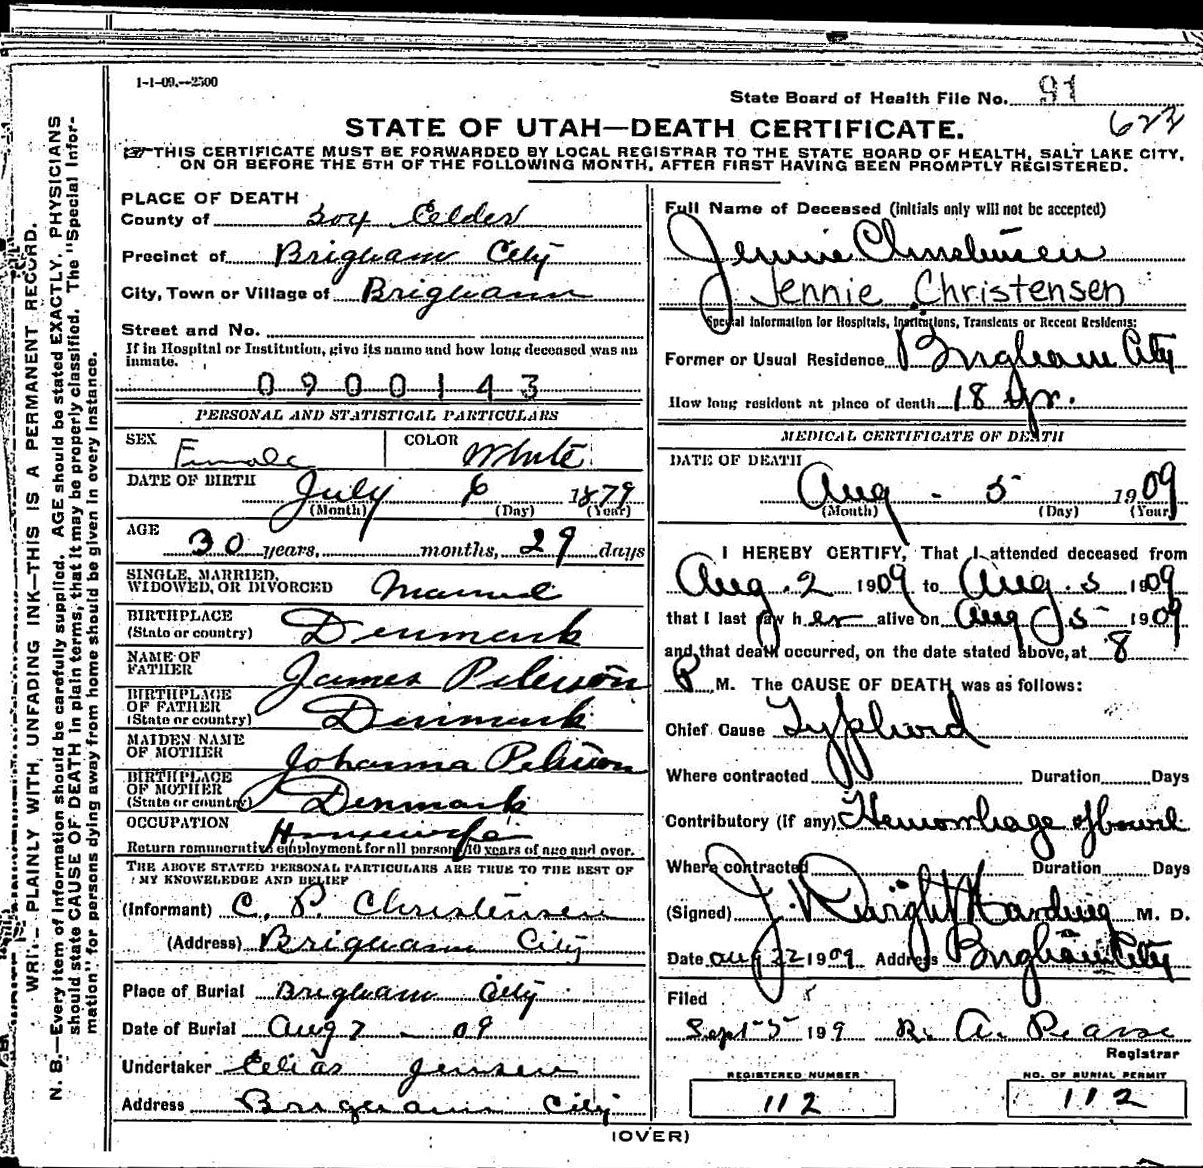 1-1-09.--2500
State Board of Health File No. 91
622
STATE OF UTAH—DEATH CERTIFICATE.
THIS CERTIFICATE MUST BE FORWARDED BY LOCAL REGISTRAR TO THE STATE BOARD OF HEALTH, SALT LAKE CITY,
ON OR BEFORE THE 5TH OF THE FOLLOWING MONTH, AFTER FIRST HAVING BEEN PROMPTLY REGISTERED.
WRITE PLAINLY WITH UNFADING INK—THIS IS A PERMANENT RECORD.
N. B.—Every item of information should be carefully supplied. AGE should be stated EXACTLY. PHYSICIANS
should state CAUSE OF DEATH in plain terms, that it may be properly classified. The "Special Infor-
mation" for persons dying away from home should be given in every instance.
PLACE OF DEATH
County of Box Elder
Precinct of Brigham City
City, Town or Village of Brigham
Street and No.
If in Hospital or Institution, give its name and how long deceased was an
inmate.
0900143
PERSONAL AND STATISTICAL PARTICULARS
SEX Female COLOR White
DATE OF BIRTH July 6 1879
(Month) (Day) (Year)
AGE 30 years, months, 29 days
SINGLE, MARRIED,
WIDOWED, OR DIVORCED Married
BIRTHPLACE
(State or country) Denmark
NAME OF
FATHER James Peterson
BIRTHPLACE
OF FATHER
(State or country) Denmark
MAIDEN NAME
OF MOTHER Johanna Peterson
BIRTHPLACE
OF MOTHER
(State or country) Denmark
OCCUPATION Housewife
Return remunerative employment for all persons 10 years of age and over.
THE ABOVE STATED PERSONAL PARTICULARS ARE TRUE TO THE BEST OF
MY KNOWLEDGE AND BELIEF
(Informant) C. P. Christensen
(Address) Brigham City
Place of Burial Brigham City
Date of Burial Aug 7 - 09
Undertaker Elias Jensen
Address Brigham City
Full Name of Deceased (initials only will not be accepted)
Jennie Christensen
Jennie Christensen
Special Information for Hospitals, Institutions, Transients or Recent Residents:
Former or Usual Residence Brigham City
How long resident at place of death 18 yr.
MEDICAL CERTIFICATE OF DEATH
DATE OF DEATH
Aug - 5 1909
(Month) (Day) (Year)
I HEREBY CERTIFY, That I attended deceased from
Aug. 2 1909 to Aug. 5 1909
that I last saw her alive on Aug 5 1909
and that death occurred, on the date stated above, at 8
P M. The CAUSE OF DEATH was as follows:
Chief Cause Typhoid
Where contracted Duration Days
Contributory (if any) Hemorrhage of bowel
Where contracted Duration Days
(Signed) J. Dwight Harding M. D.
Date Aug 22 1909 Address Brigham City
Filed
Sept 5 1909 R. A. Pearse
Registrar
REGISTERED NUMBER
112
NO. OF BURIAL PERMIT
112
(OVER)